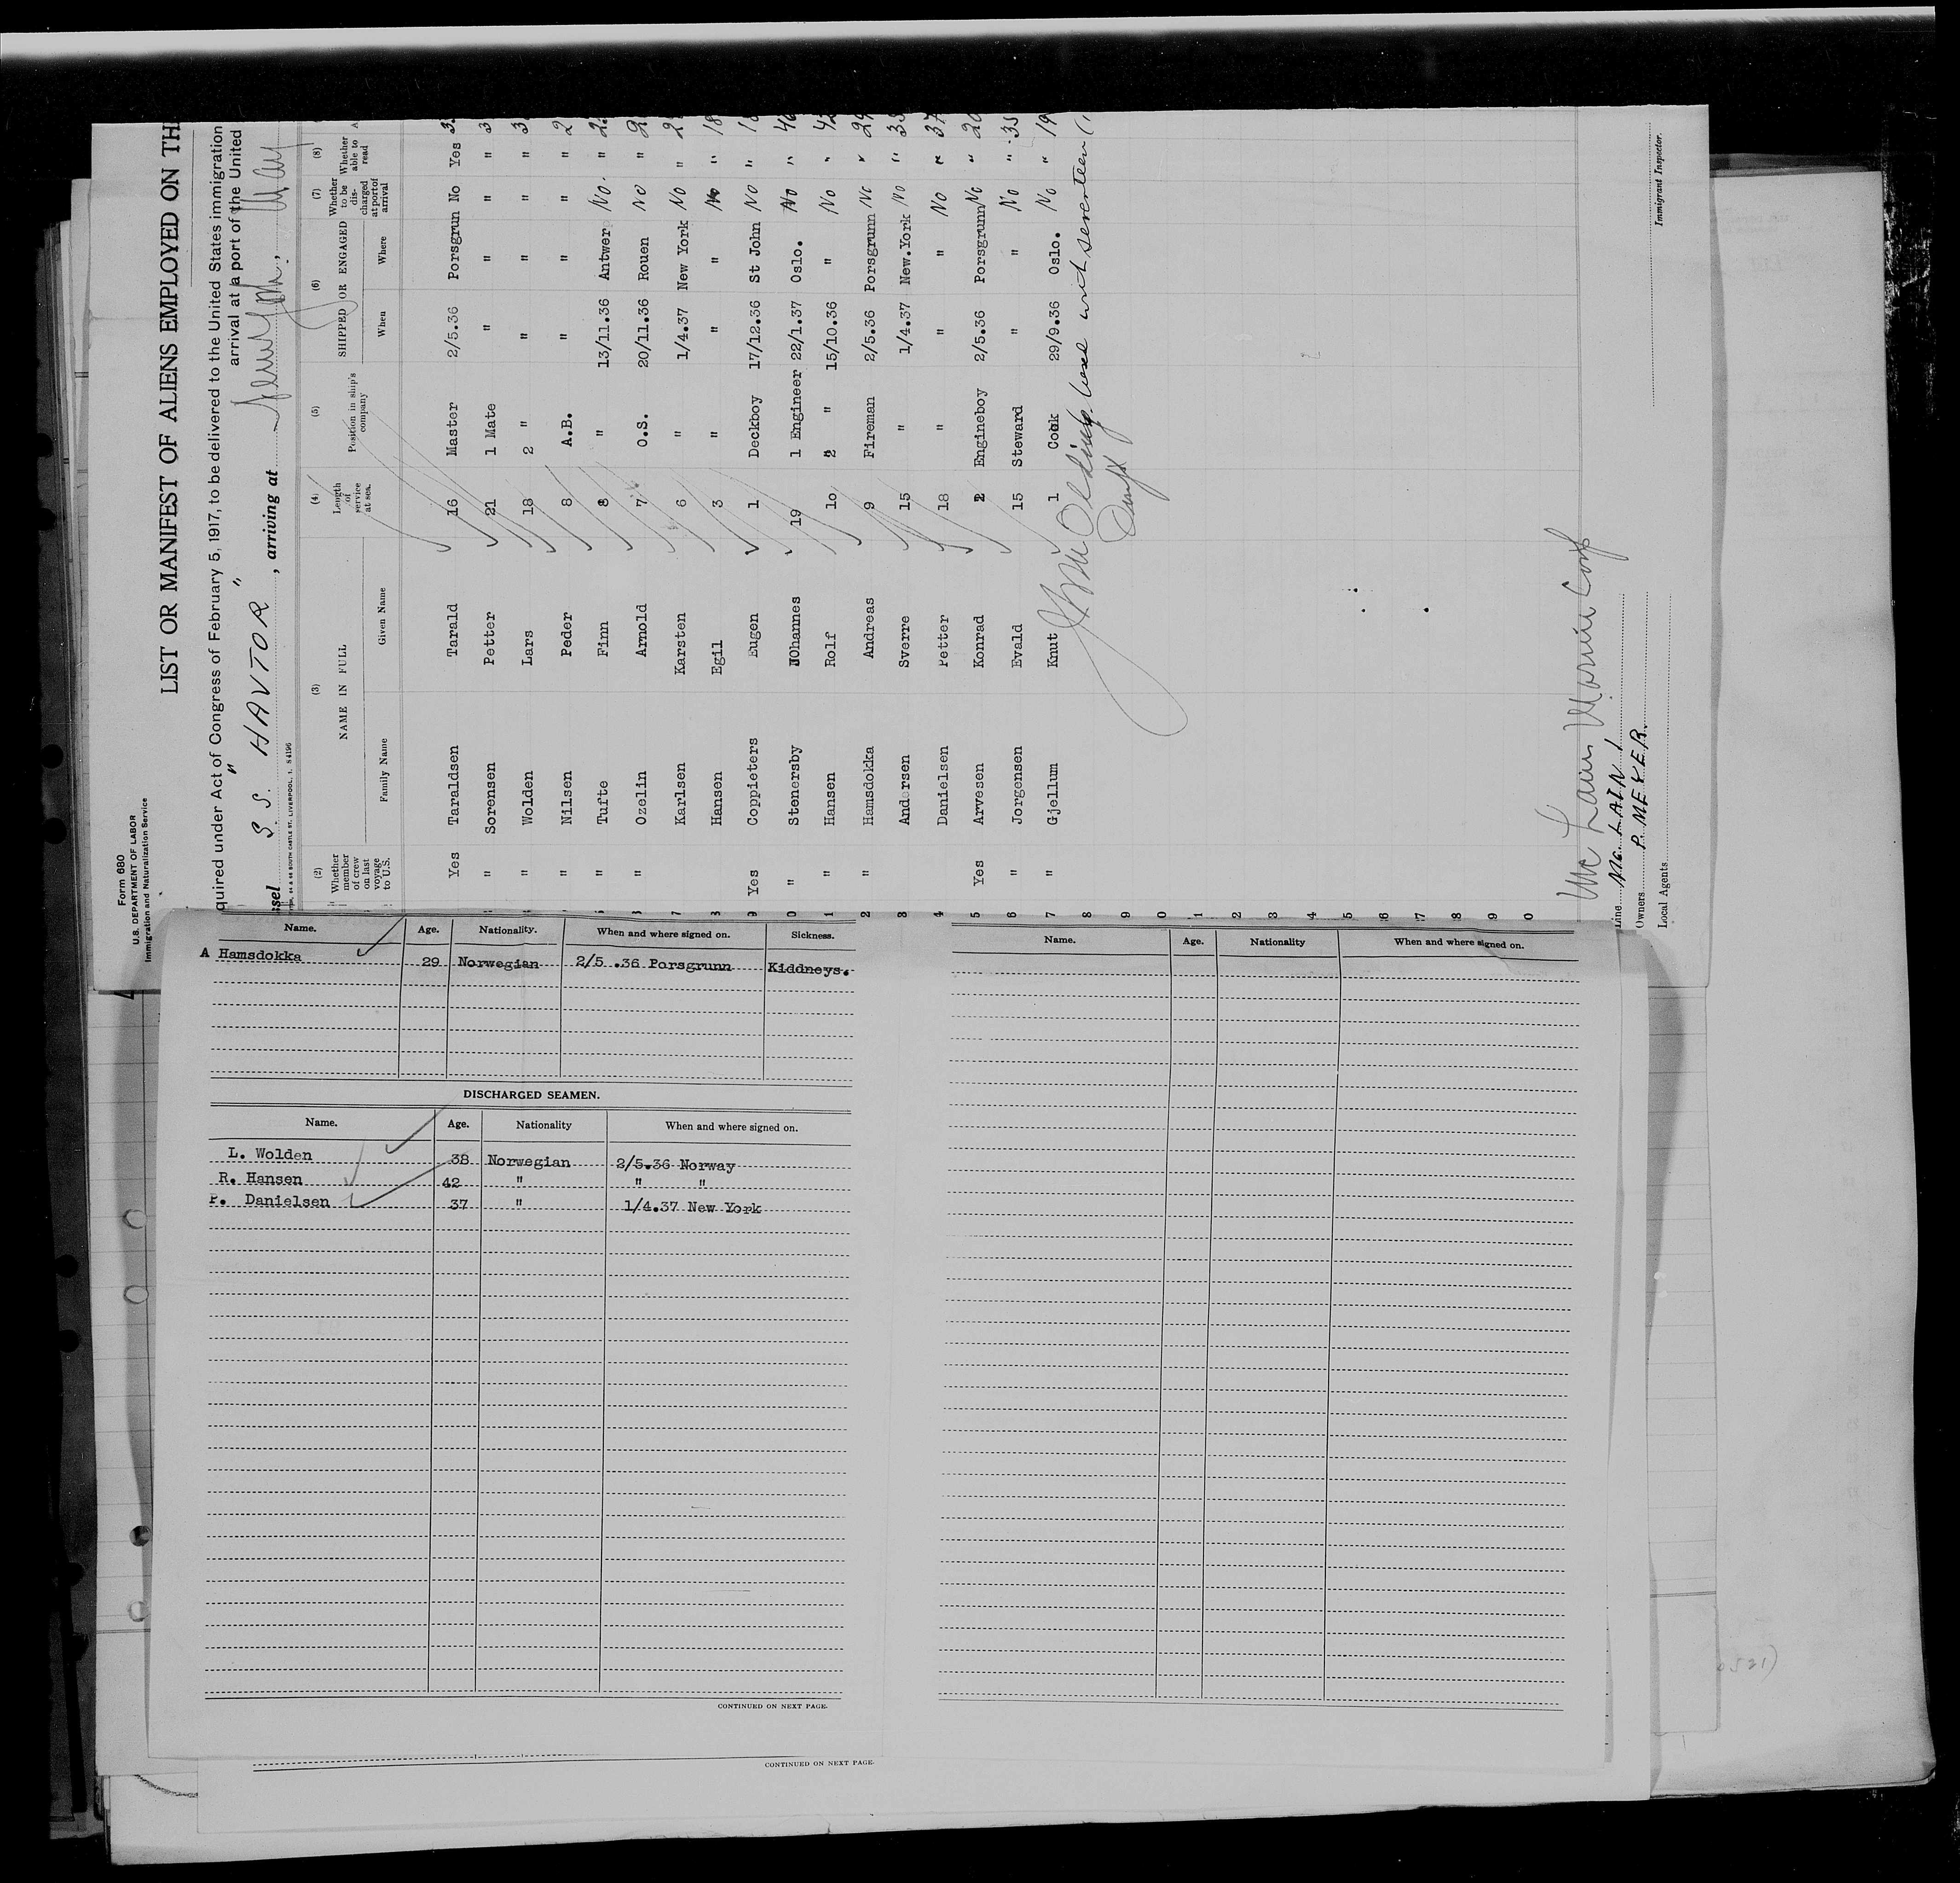 Form 680
U.S. DEPARTMENT OF LABOR
Immigration and Naturalization Service
LIST OR MANIFEST OF ALIENS EMPLOYED ON TH
quired under Act of Congress of February 5, 1917, to be delivered to the United States immigration
arrival at a port of the United
ssel S. S. "HAVTOR", arriving at
(2) (3) (4) (5) (6) (7) (8)
Whether member of crew on last voyage to U.S. NAME IN FULL Length of service at sea. Position in ship's company SHIPPED OR ENGAGED Whether to be discharged at port of arrival Whether able to read A
Family Name Given Name When Where
Yes Taraldsen Tarald 16 Master 2/5.36 Porsgrun No Yes 3
" Sorensen Petter 21 1 Mate " " " " 3
" Wolden Lars 18 2 " " " " " 3
" Nilsen Peder 8 A.B. " " " " 2
" Tufte Finn 8 " 13/11.36 Antwer No. " 2
" Ozelin Arnold 7 O.S. 20/11.36 Rouen No " 2
7 Karlsen Karsten 6 " 1/4.37 New York No " 2
Hansen Egil 3 " " " No " 18
9 Yes Coppieters Eugen 1 Deckboy 17/12.36 St John No " 18
0 " Stenersby Johannes 19 1 Engineer 22/1.37 Oslo. No " 40
1 " Hansen Rolf 10 2 " 15/10.36 " No " 42
2 " Hamsdokka Andreas 9 Fireman 2/5.36 Porsgrunn No " 29
3 Andersen Sverre 15 " 1/4.37 New.York No "
4 Danielsen Petter 18 " " " No " 37
5 Yes Arvesen Konrad 2 Engineboy 2/5.36 Porsgrunn No " 20
6 " Jorgensen Evald 15 Steward " " No " 35
7 " Gjellum Knut 1 Cook 29/9.36 Oslo. No " 19
8
9
0
1
2
3
4
5
6
7
8
9
0
Mc Lain Marine Corp
Line Mc. LAIN
Owners P. MEYER.
Local Agents
Immigrant Inspector.
Name. Age. Nationality. When and where signed on. Sickness.
A Hamsdokka 29 Norwegian 2/5 .36 Porsgrunn Kiddneys.
DISCHARGED SEAMEN.
Name. Age. Nationality When and where signed on.
L. Wolden 38 Norwegian 2/5.36 Norway
R. Hansen 42 " " "
P. Danielsen 37 " 1/4.37 New York
CONTINUED ON NEXT PAGE.
Name. Age. Nationality When and where signed on.
CONTINUED ON NEXT PAGE.